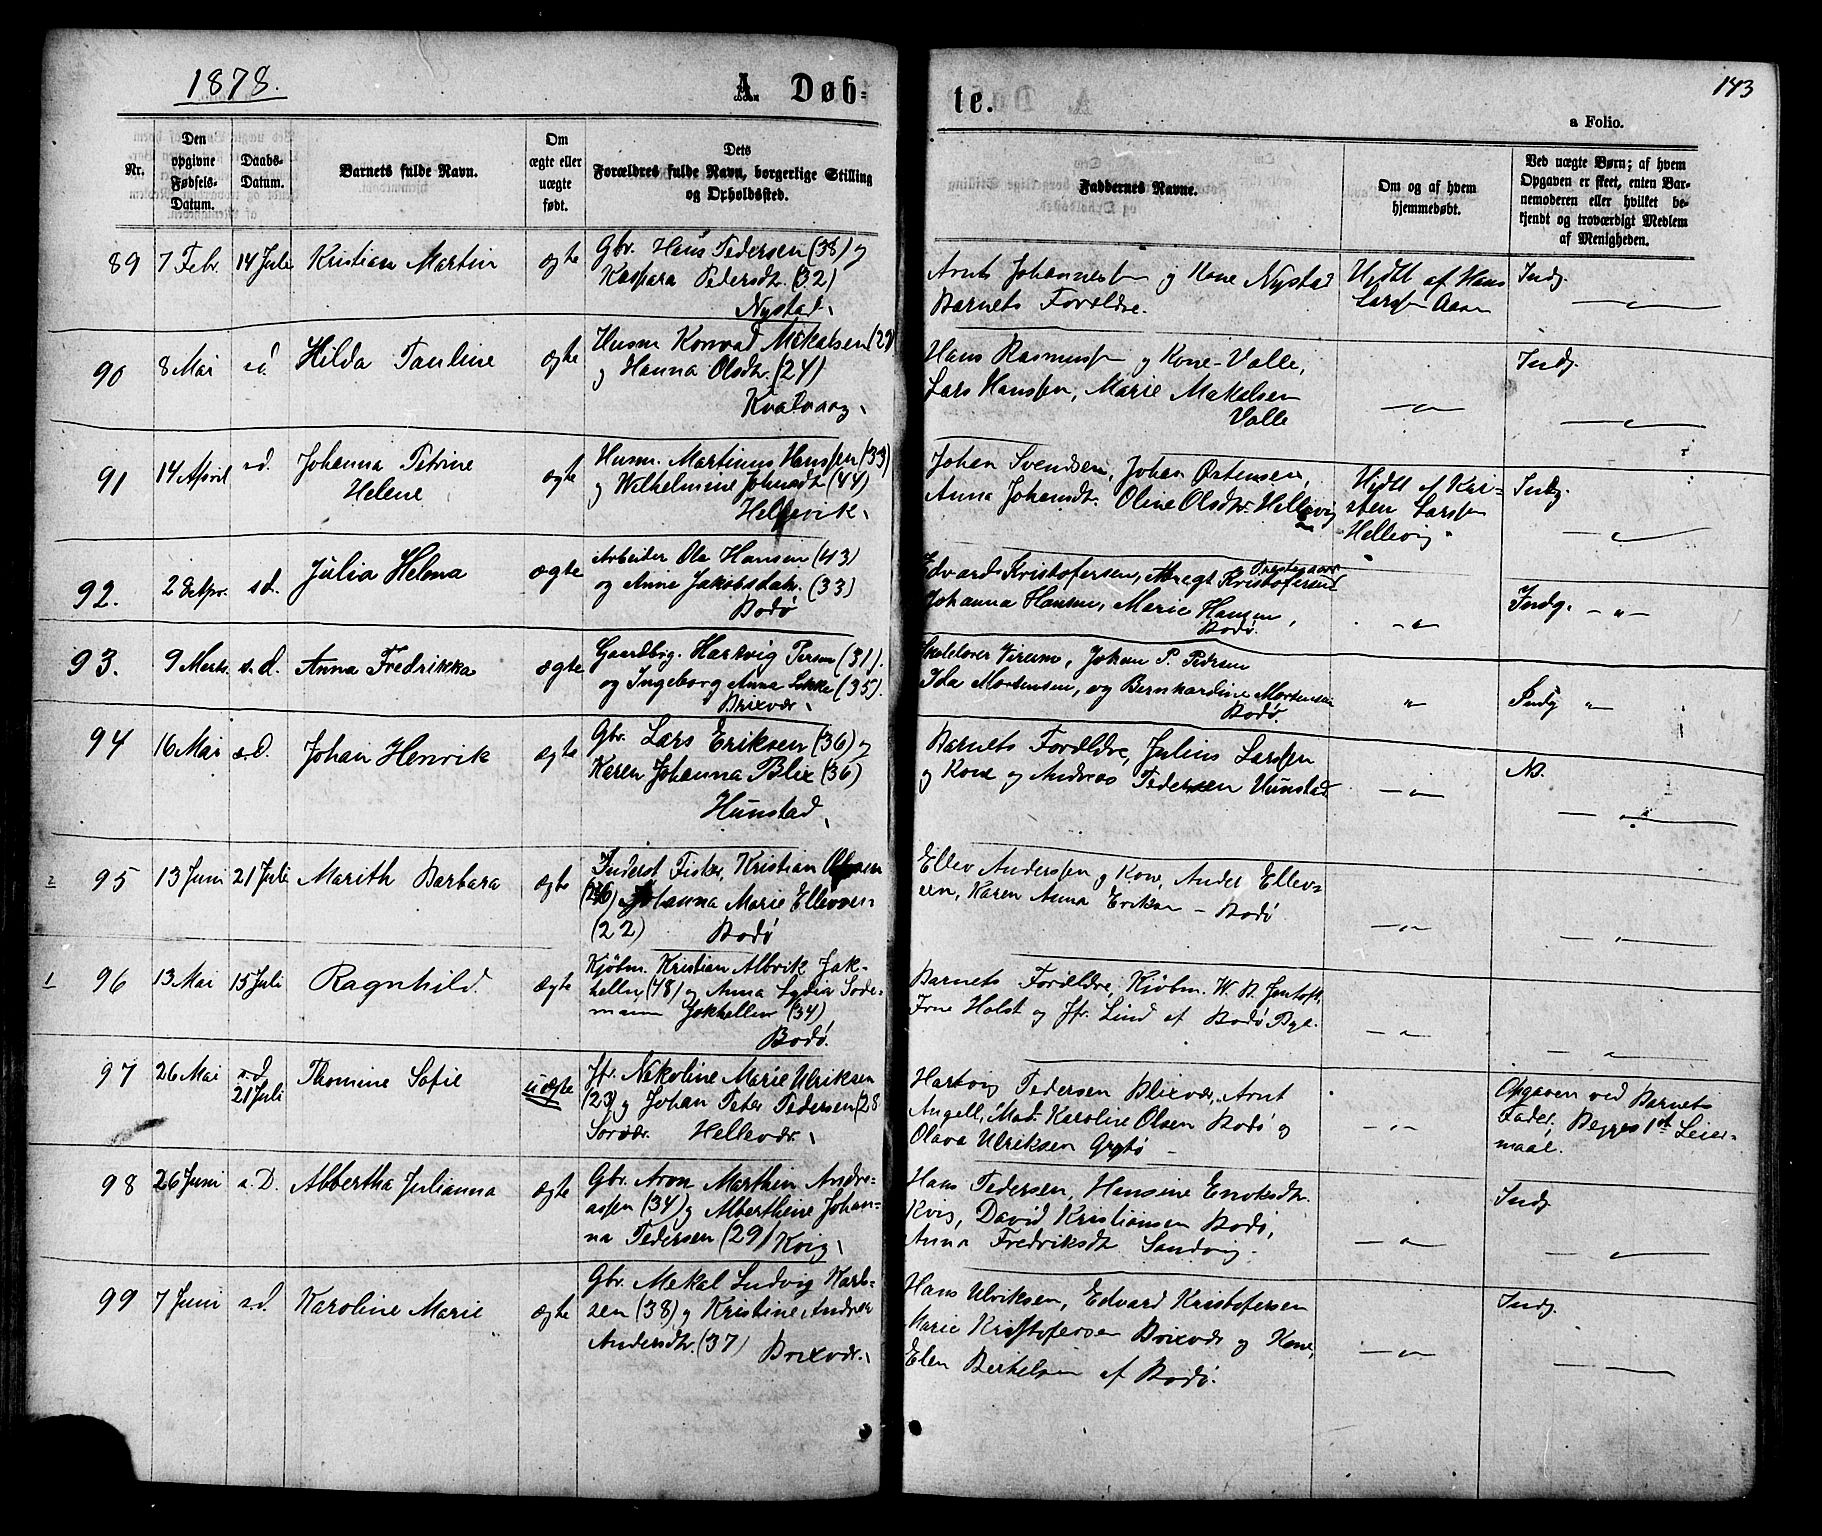 1878.
A. Døb-
te.
143
a Folio.
Nr.
Den
opgivne
Fødsels-
Datum.
Daabs-
Datum.
Barnets fulde Navn.
Om
ægte eller
uægte
født.
Dets
Forældres fulde Navn, borgerlige Stilling
og Opholdssted.
Faddernes Navne.
Om og af hvem
hjemmedøbt.
Ved uægte Børn; af hvem
Opgaven er skeet, enten Bar-
nemoderen eller hvilket be-
kjendt og troværdigt Medlem
af Menigheden.
89 7 Febr. 14 Juli Kristian Martin ægte
Gbr. Hans Pedersen (38) og
Kaspara Pedersdtr. (32)
Nystad
Arnt Johannessen og Kone Nystad
Barnets Forældre.
Hjdtt af Hans
Larssen Aasen
Indg.
90 8 Mai s.d. Hilda Pauline ægte
Husm Konrad Mekalsen (29)
og Hanna Olsdtr. (24)
Kvalvaag
Hans Rasmussen og Kone Valle,
Lars Hanssen, Marie Mekalsen
Valle
Indg.
91 14 April s.d. Johanna Petrine
Helene
ægte
Husm. Martinus Hanssen (33)
og Wilhelmine Johnsdtr (44)
Hellevik
Johan Svendsen, Johan Østensen,
Anna Johansdtr. Oline Olsdtr. Hellevig
Hjdtt af Kri-
sten Larssen
Hellevig.
Indg.
92. 28 Apr. s.d. Julia Helena ægte
Arbeider Ole Hansen (43)
og Anne Jakobsdatr. (33)
Bodø
Edvard Kristofersen, Margt Kristofersen
Johanna Hansen, Marie Hansen,
Bodø.
Indg. - " -
93. 9 Marts s.d. Anna Fredrikka ægte
Gaardbrg. Hartvig Persen (31).
og Ingeborg Anna Likke (35).
Brixvær
Skolelærer Vireum, Johan P. Pedersen
Ida Mortensen, og Bernhardine Mortensen
Bodø.
"
Indg "
94 16 Mai s.d. Johan Henrik ægte
Gbr. Lars Eriksen (36) og
Karen Johanna Blix (36)
Hunstad
Barnets Forældre, Julius Larssen
og Kone og Andreas Pedersen Hunstad
N.
2 95 13 Juni 21 Juli Marith Barbara ægte
Inderst Fisker, Kristian Olsen
(26) og Johanna Marie Ellevsen
(22) Bodø
Ellev Anderssen og Kone, Ander Ellev-
sen, Karen Anna Eriksen - Bodø
1 96 13 Mai 15 Juli Ragnhild ægte
Kjøbm. Kristian Albrik Jak-
hellen (48) og Anna Lydia Sode-
mann Jakhellen (34)
Bodø.
Barnets Forældre, Kjøbm. W. B. Jentoft,
Frue Holst og Jfr. Lind af Bodø By.
97 26 Mai s.d.
21 Juli
Thomine Sofie uægte
Jfr. Nikoline Marie Ulriksen
(23) og Johan Peter Pedersen (28
Sørvær. Hellevær.
Hartvig Pedersen Blixvær, Arnt
Angell, Mad. Karoline Olsen Bodø og
Olava Ulriksen Grytø
Opgaven ved Barnets
Fader, Begges 1st Leier-
maal.
98 26 Juni s.D. Albertha Julianna ægte
Gbr. Aron Marthin Andre-
assen (34) og Alberthine Johan-
na Pedersen (29) Kvig
Hans Pedersen, Hansine Enoksdtr.
Kvig, David Kristiansen Bodø,
Anna Fredriksdtr Sandvig.
Indg
99 7 Juni s.d. Karoline Marie ægte
Gbr. Mekal Ludvig Karl-
sen (38) og Kristine Andrea
Andersdtr. (37)
Brixvær.
Hans Ulriksen, Edvard Kristofersen
Marie Kristofersen Brixvær og Kone,
Elen Bertelsen af Bodø.
Indg.